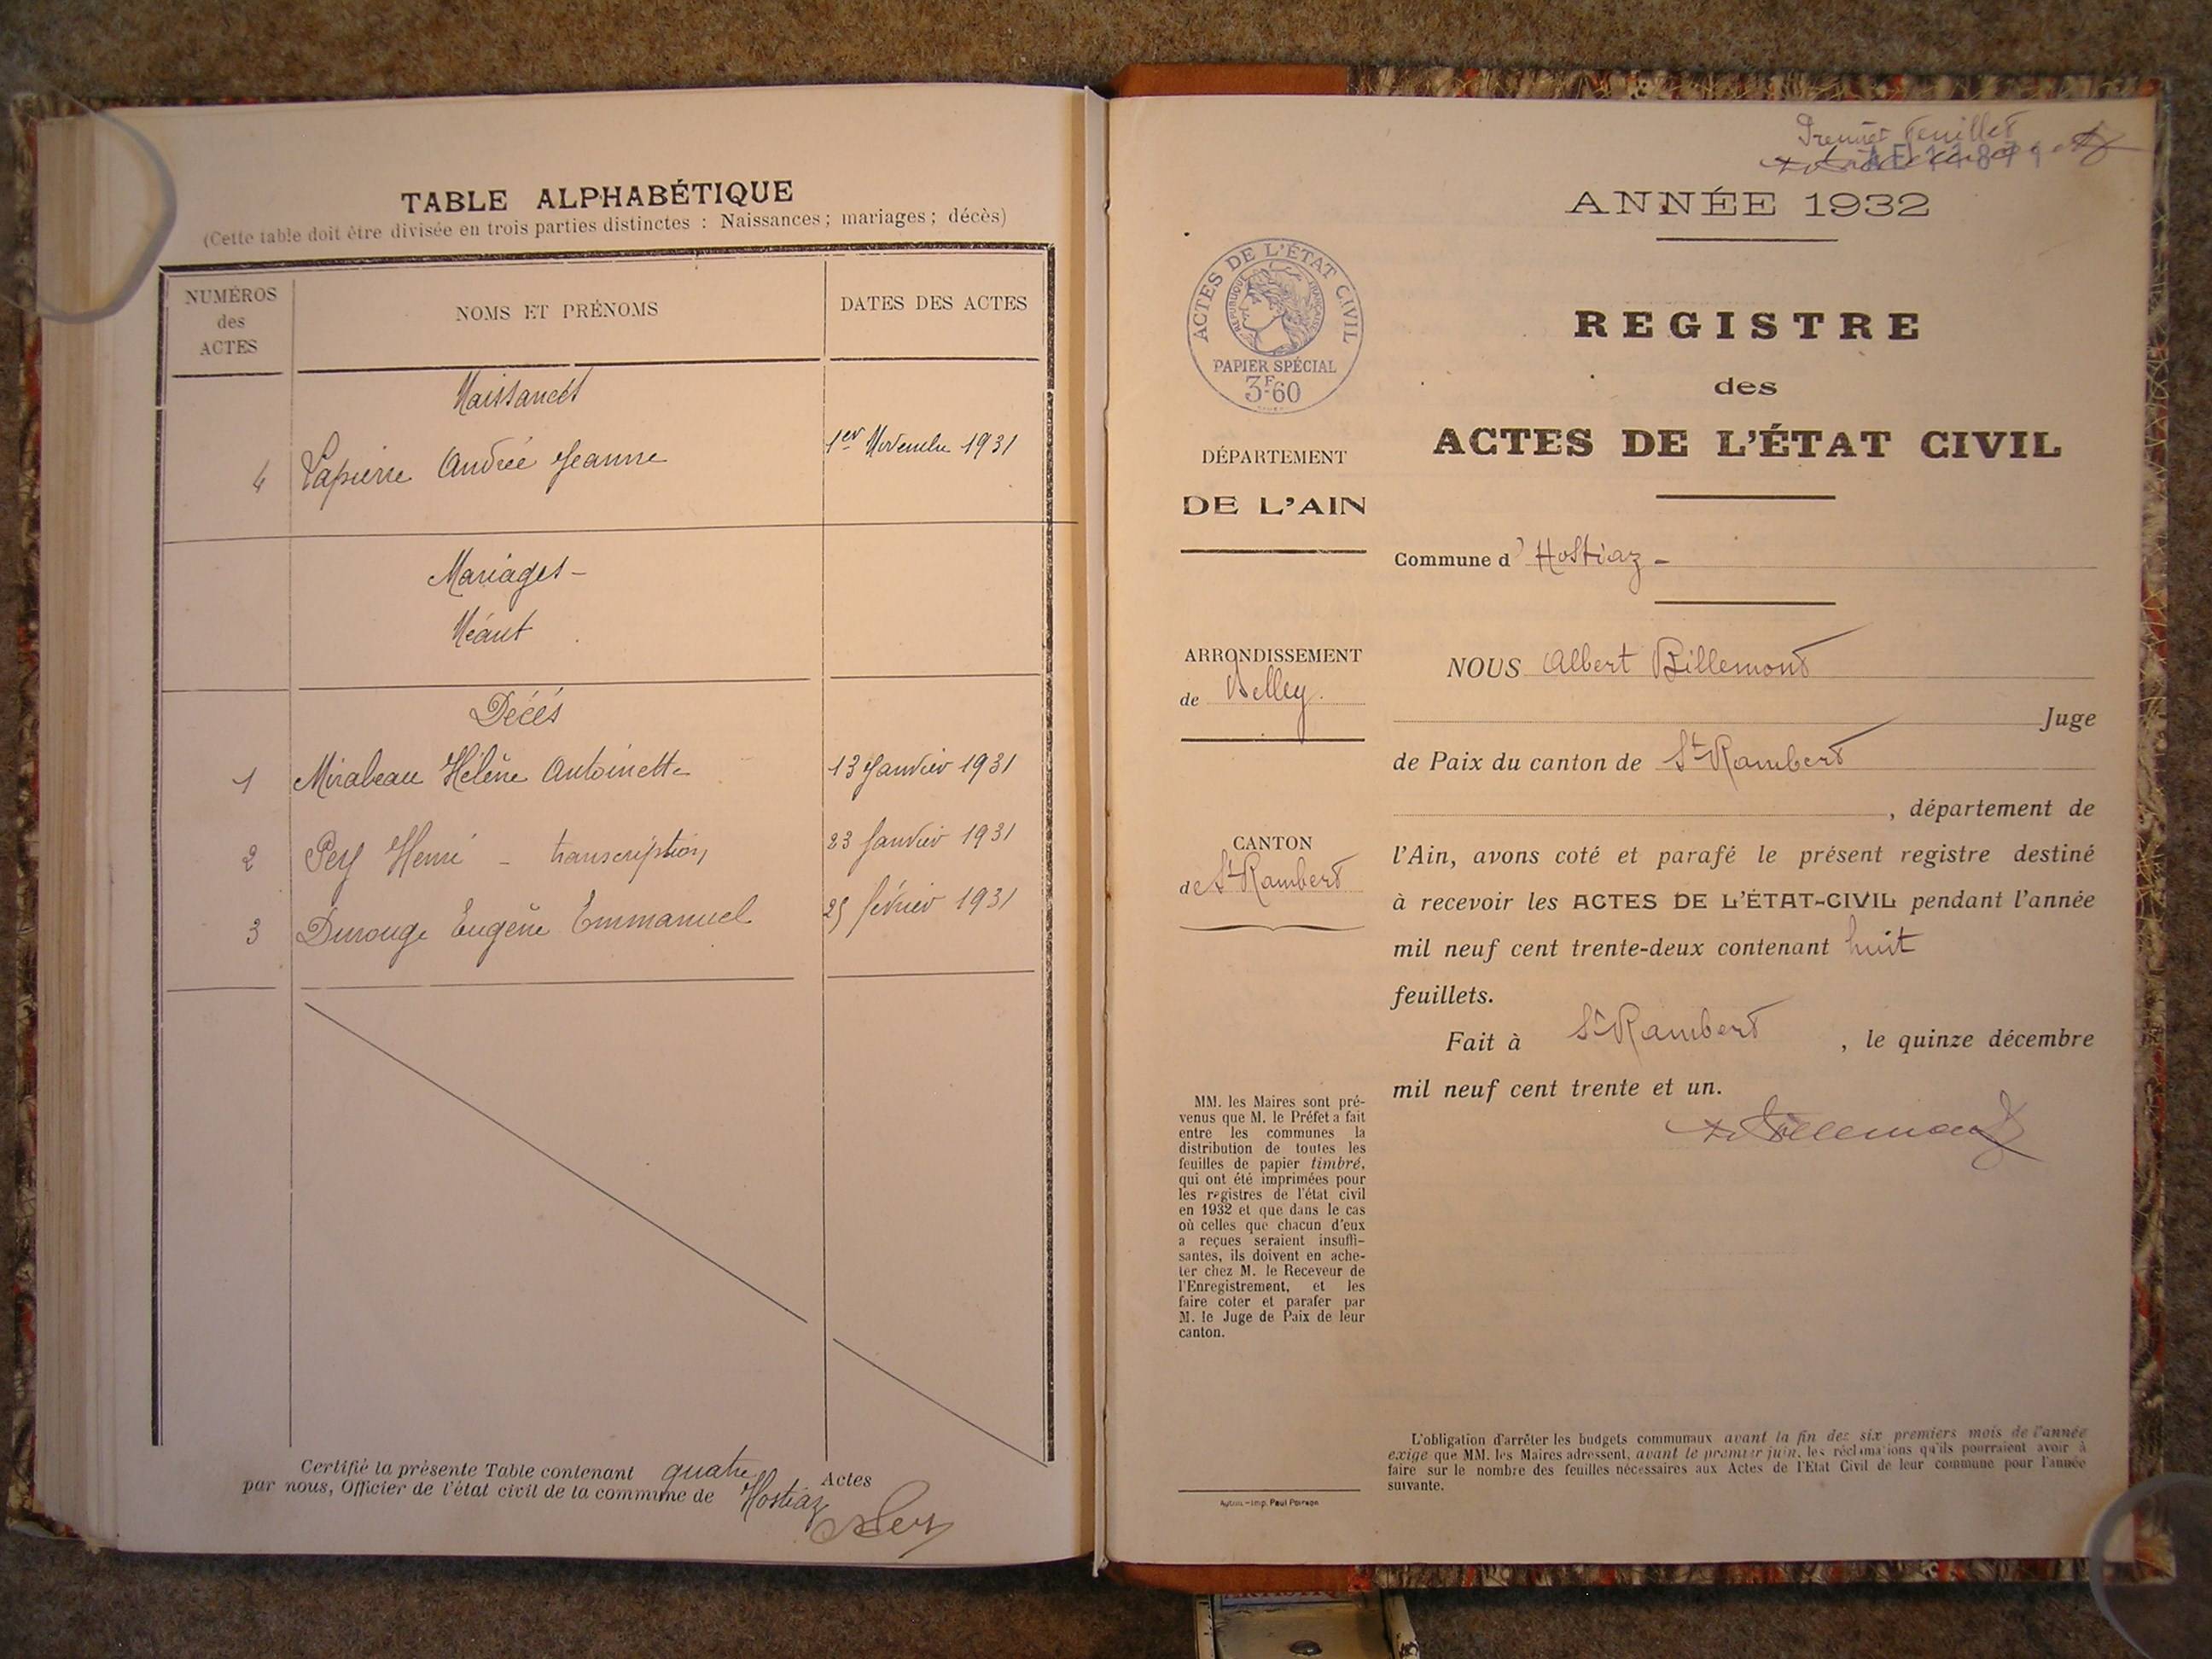 TABLE ALPHABÉTIQUE
(Cette table doit être divisée en trois parties distinctes : Naissances ; mariages ; décès)
NUMÉROS
des
ACTES
NOMS ET PRÉNOMS
DATES DES ACTES
Naissances
4 Lapierre Andrée Jeanne 1er Novembre 1931
Mariages -
Néant
Décès
1 Mirabeau Hélène Antoinette 13 Janvier 1931
2 Pey Henri - transcription, 23 Janvier 1931
3 Durouge Eugène Emmanuel 25 février 1931
Certifié la présente Table contenant quatre Actes
par nous, Officier de l'état civil de la commune de Hostiaz
Pey
Premier feuillet
ANNÉE 1932
ACTES DE L'ÉTAT CIVIL
RÉPUBLIQUE FRANÇAISE
PAPIER SPÉCIAL
3F60
REGISTRE
des
ACTES DE L'ÉTAT CIVIL
DÉPARTEMENT
DE L'AIN
Commune d' Hostiaz -
ARRONDISSEMENT
de Belley.
CANTON
de St Rambert
NOUS Albert Billemont
Juge
de Paix du canton de St Rambert
, département de
l'Ain, avons coté et parafé le présent registre destiné
à recevoir les ACTES DE L'ÉTAT-CIVIL pendant l'année
mil neuf cent trente-deux contenant huit
feuillets.
Fait à St Rambert , le quinze décembre
mil neuf cent trente et un.
A. Billemont
MM. les Maires sont pré-
venus que M. le Préfet a fait
entre les communes la
distribution de toutes les
feuilles de papier timbré,
qui ont été imprimées pour
les registres de l'état civil
en 1932 et que dans le cas
où celles que chacun d'eux
a reçues seraient insuffi-
santes, ils doivent en ache-
ter chez M. le Receveur de
l'Enregistrement, et les
faire coter et parafer par
M. le Juge de Paix de leur
canton.
L'obligation d'arrêter les budgets communaux avant la fin des six premiers mois de l'année
exige que MM. les Maires adressent, avant le premier juin, les réclamations qu'ils pourraient avoir à
faire sur le nombre des feuilles nécessaires aux Actes de l'Etat Civil de leur commune pour l'année
suivante.
Autun - Imp. Paul Poirson